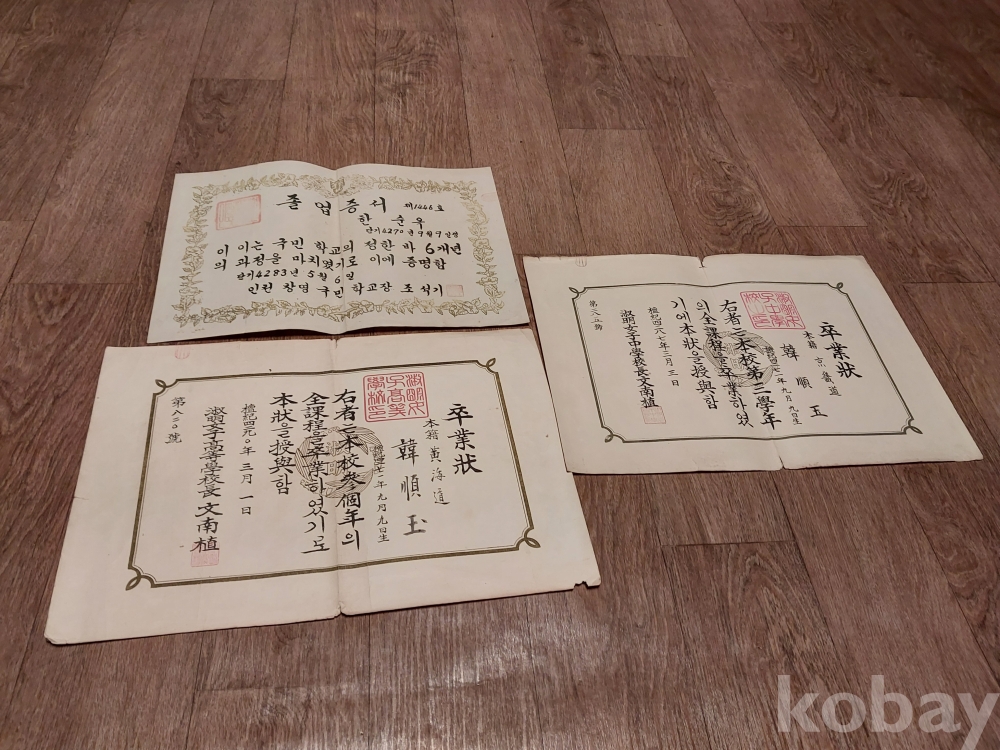 졸업증서
제1446호
한순옥
단기4270년9월9일생
이 이는 국민 학교의 정한 바 6개년
의 과정을 마치였기로 이에 증명함
단기4283년 5월 6일
인천 창영 국민 학교장 조석기
卒業狀
本籍 京畿道
韓順玉
檀紀四二七一年九月九日生
右者는本校第三學年
의全課程을卒業하였
기에本狀을授與함
檀紀四二八七年三月三日
淑明女子中學校長文南植
卒業狀
本籍 黃海道
韓順玉
檀紀四二七一年九月九日生
右者는本校參個年의
全課程을卒業하였기로
本狀을授與함
檀紀四二九〇年三月一日
淑明女子高等學校長文南植
第八二〇號
kobay